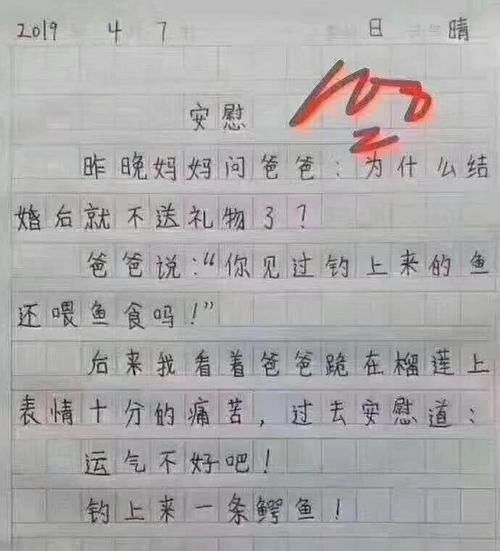 2019 4 7 日 晴
100
安慰
昨晚妈妈问爸爸：为什么结
婚后就不送礼物了？
爸爸说：“你见过钓上来的鱼
还喂鱼食吗！”
后来我看着爸爸跪在榴莲上
表情十分的痛苦，过去安慰道：
运气不好吧！
钓上来一条鳄鱼！